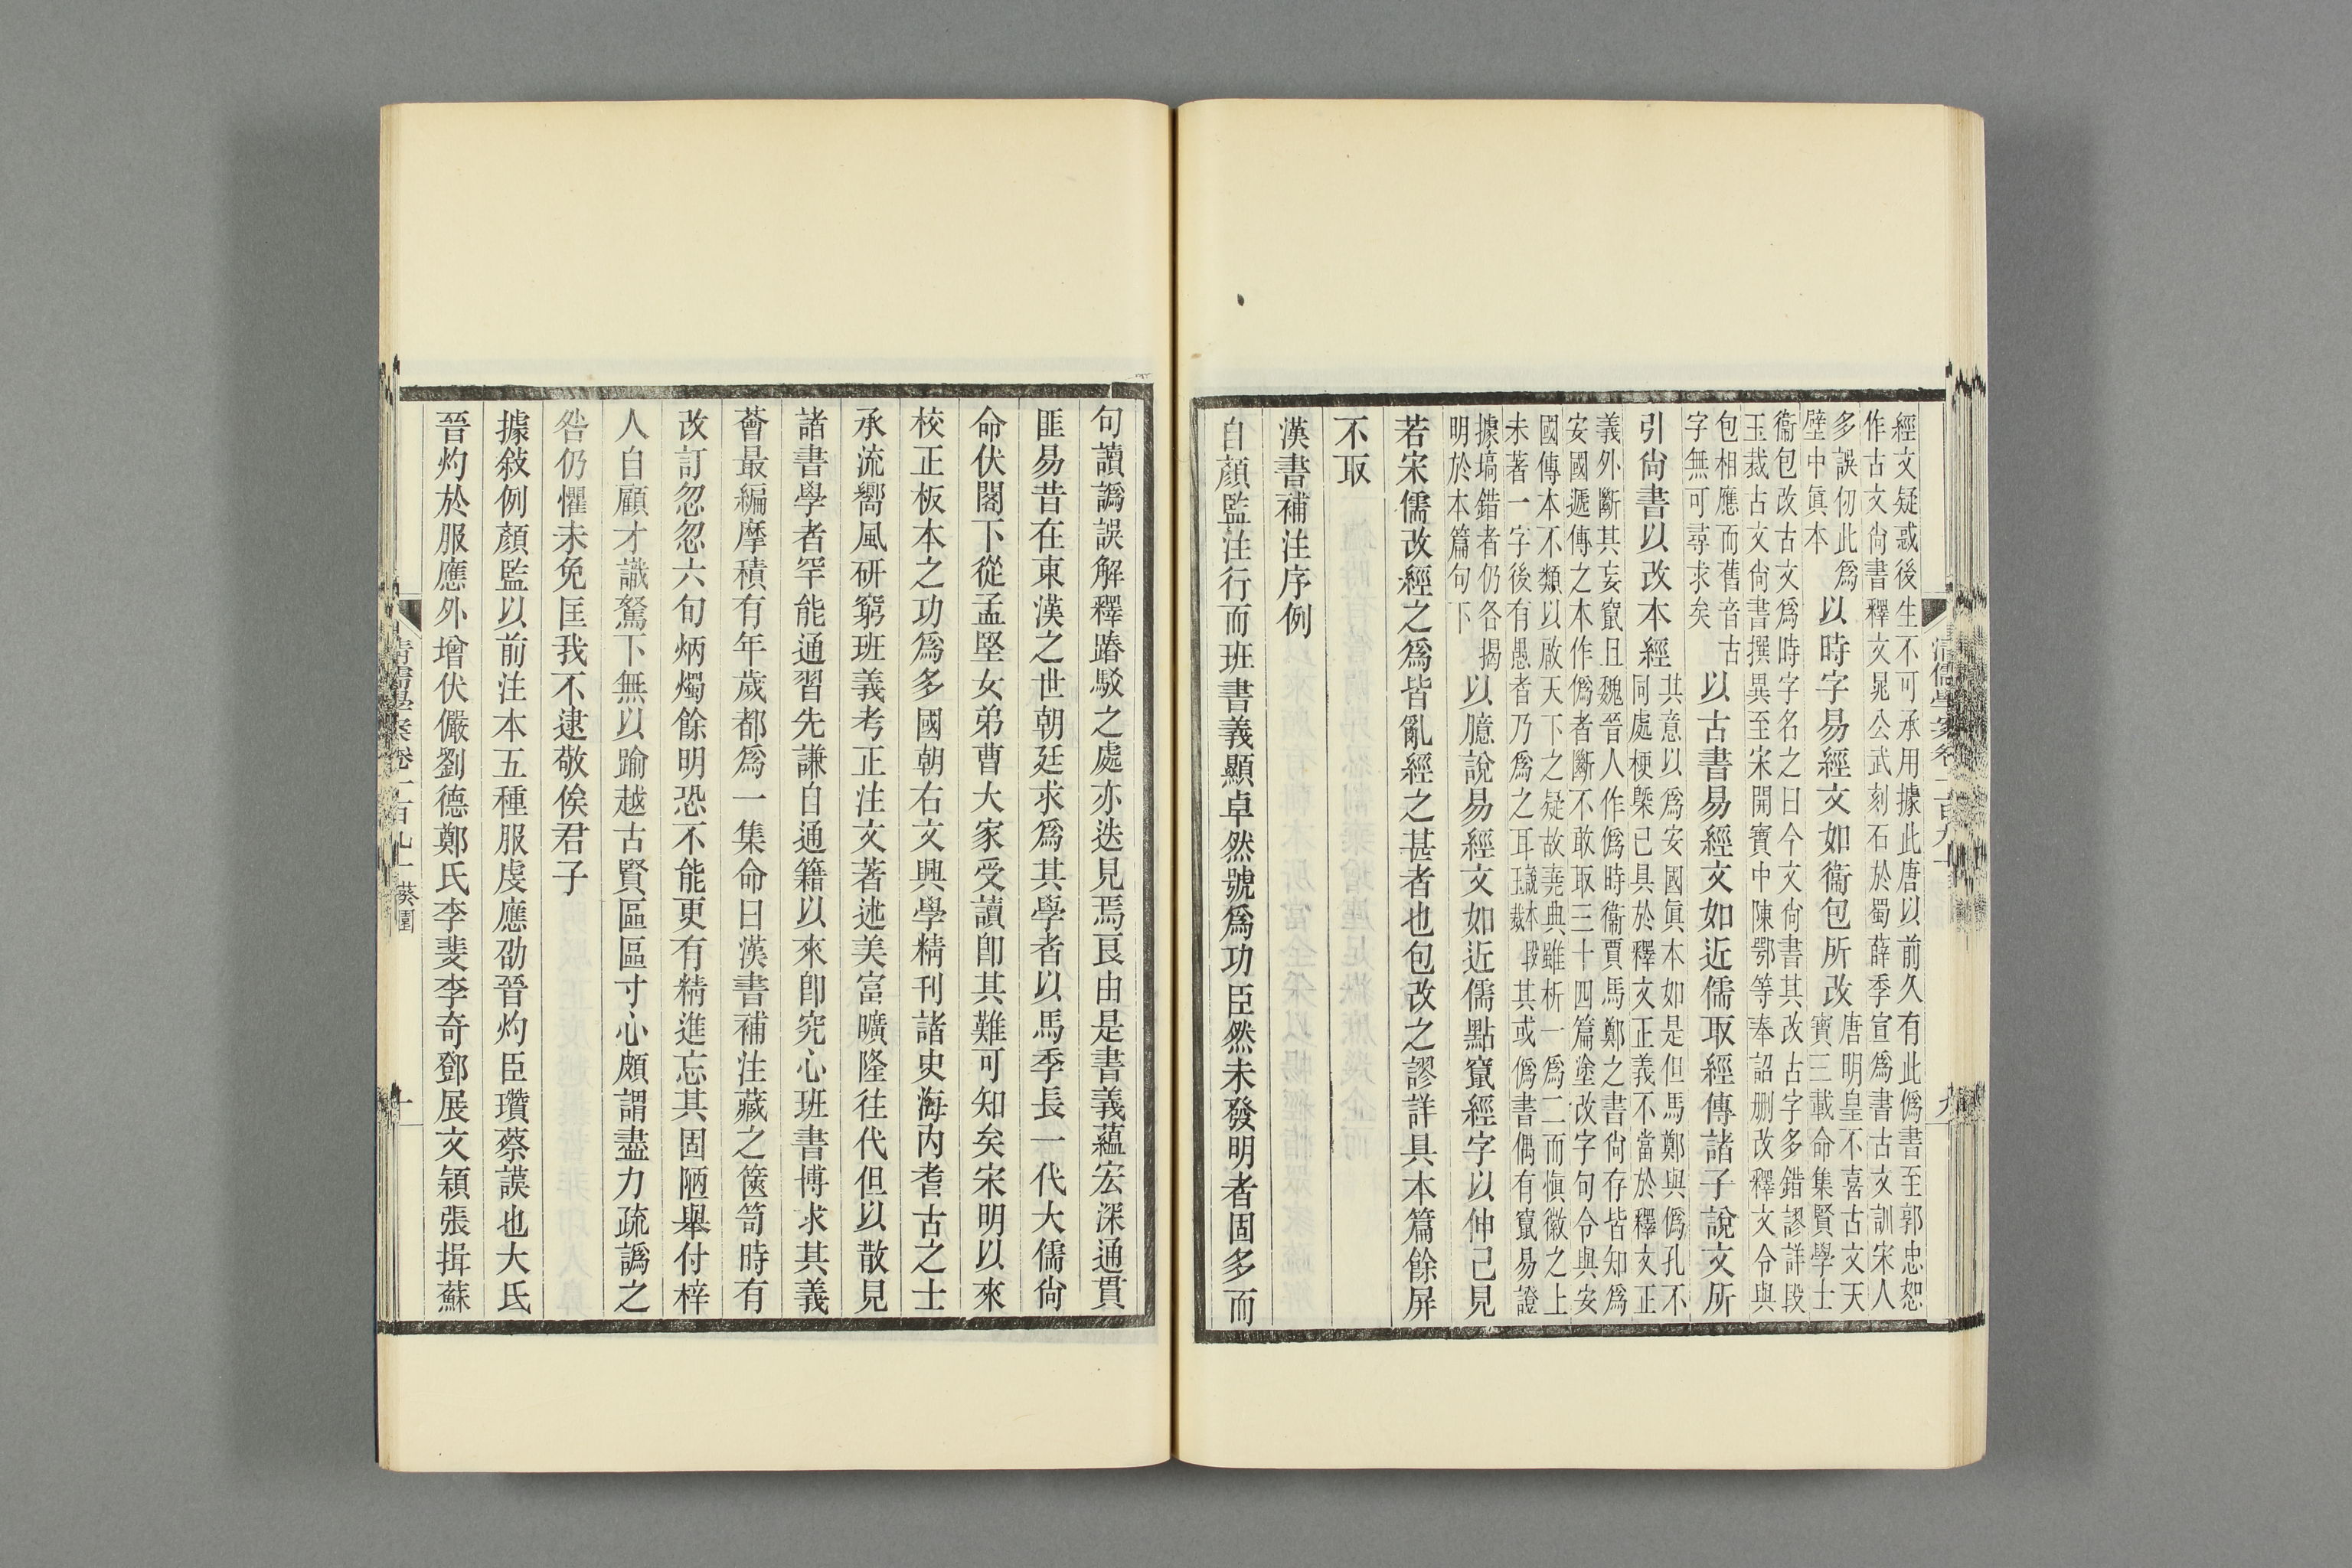 經文疑惑後生不可承用據此唐以前久有此僞書至郭忠恕
作古文尙書釋文晁公武刻石於蜀薛季宣爲書古文訓宋人
多誤仞此爲
壁中眞本
以時字易經文如衞包所改
唐明皇不喜古文天
寶三載命集賢學士
衞包改古文爲時字名之曰今文尙書其改古字多錯謬詳段
玉裁古文尙書撰異至宋開寶中陳鄂等奉詔删改釋文令與
包相應而舊音古
字無可尋求矣
以古書易經文如近儒取經傳諸子說文所
引尙書以改本經
其意以爲安國眞本如是但馬鄭與僞孔不
同處梗槩已具於釋文正義不當於釋文正
義外斷其妄竄且魏晉人作僞時衞賈馬鄭之書尙存皆知爲
安國遞傳之本作僞者斷不敢取三十四篇塗改字句令與安
國傳本不類以啟天下之疑故堯典雖析一爲二而愼徽之上
未著一字後有愚者乃爲之耳段玉裁說其或僞書偶有竄易證
據塙錯者仍各揭
明於本篇句下
以臆說易經文如近儒點竄經字以伸己見
若宋儒改經之爲皆亂經之甚者也包改之謬詳具本篇餘屏
不取
漢書補注序例
自顏監注行而班書義顯卓然號爲功臣然未發明者固多而
清儒學案卷一百九十
九
句讀譌誤解釋踳駁之處亦迭見焉良由是書義蘊宏深通貫
匪易昔在東漢之世朝廷求爲其學者以馬季長一代大儒尙
命伏閣下從孟堅女弟曹大家受讀卽其難可知矣宋明以來
校正板本之功爲多國朝右文興學精刊諸史海內耆古之士
承流嚮風硏窮班義考正注文著述美富曠隆往代但以散見
諸書學者罕能通習先謙自通籍以來卽究心班書博求其義
薈最編摩積有年歲都爲一集命曰漢書補注藏之篋笥時有
改訂忽忽六旬炳燭餘明恐不能更有精進忘其固陋舉付梓
人自顧才識駑下無以踰越古賢區區寸心頗謂盡力疏譌之
咎仍懼未免匡我不逮敬俟君子
據敍例顏監以前注本五種服虔應劭晉灼臣瓚蔡謨也大氐
晉灼於服應外增伏儼劉德鄭氏李斐李奇鄧展文穎張揖蘇
清儒學案卷一百九十 葵園
十